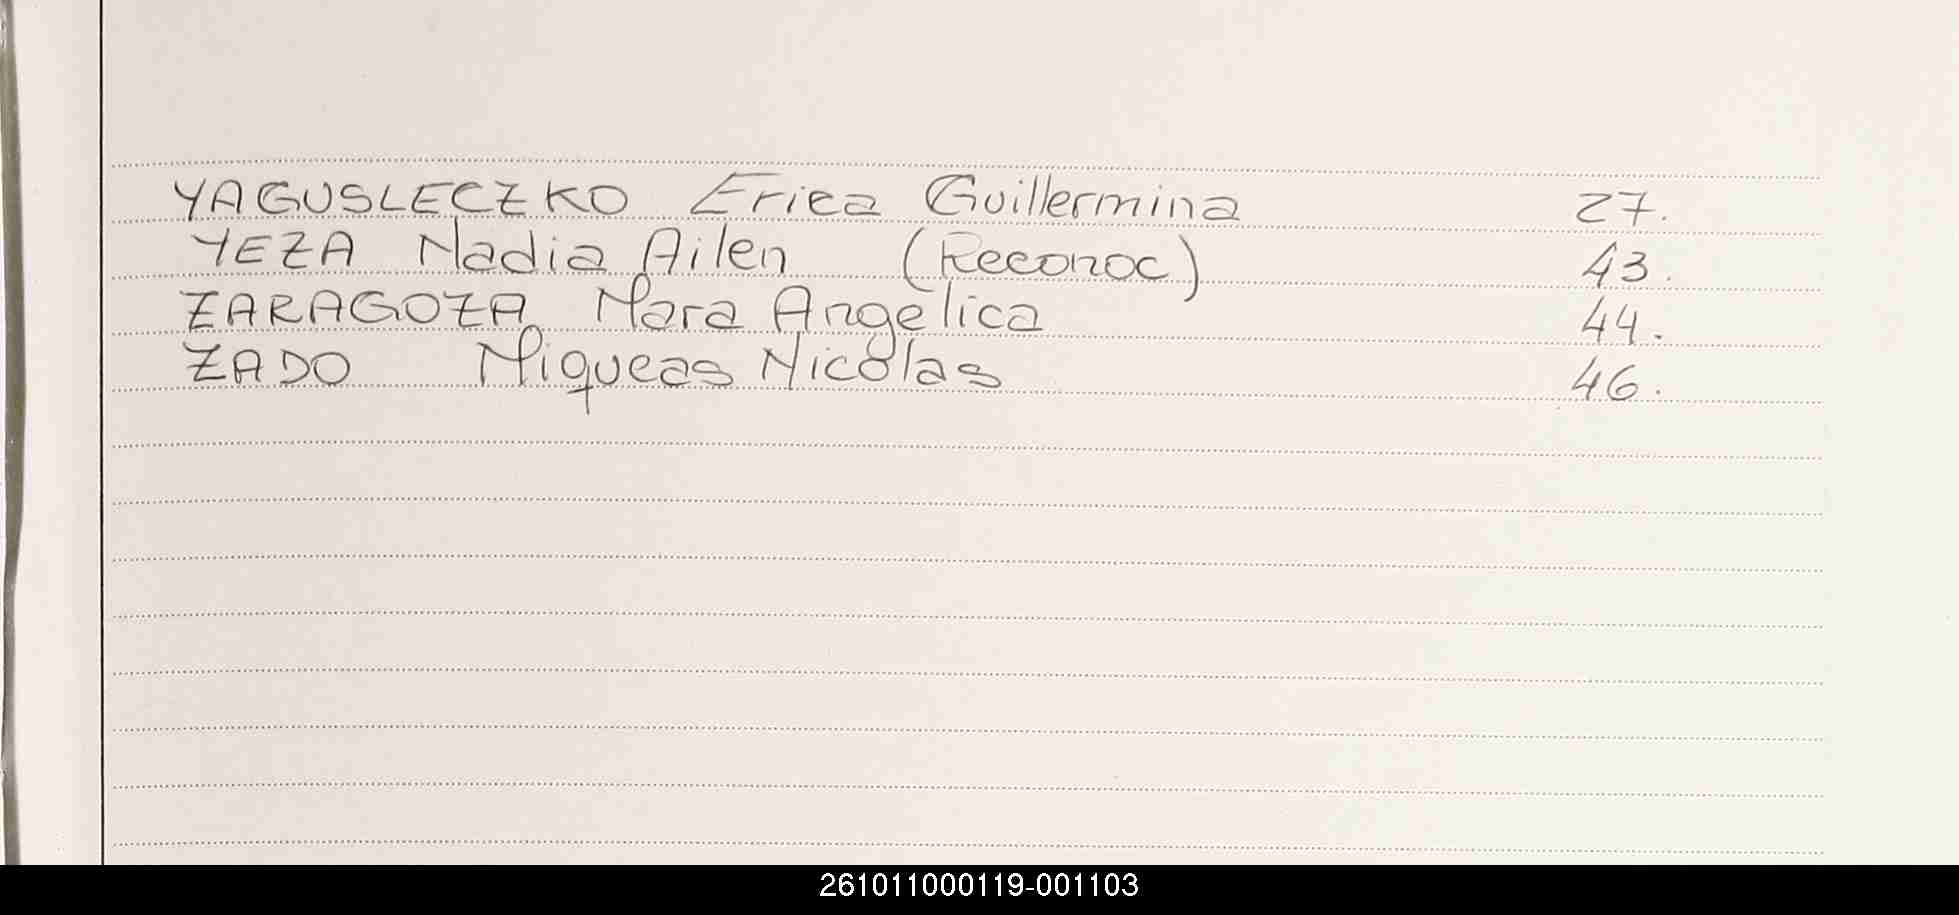 YAGUSLECZKO Erica Guillermina 27.
YEZA Nadia Ailen (Reconoc) 43.
ZARAGOZA Mara Angelica 44.
ZADO Miqueas Nicolas 46.
261011000119-001103